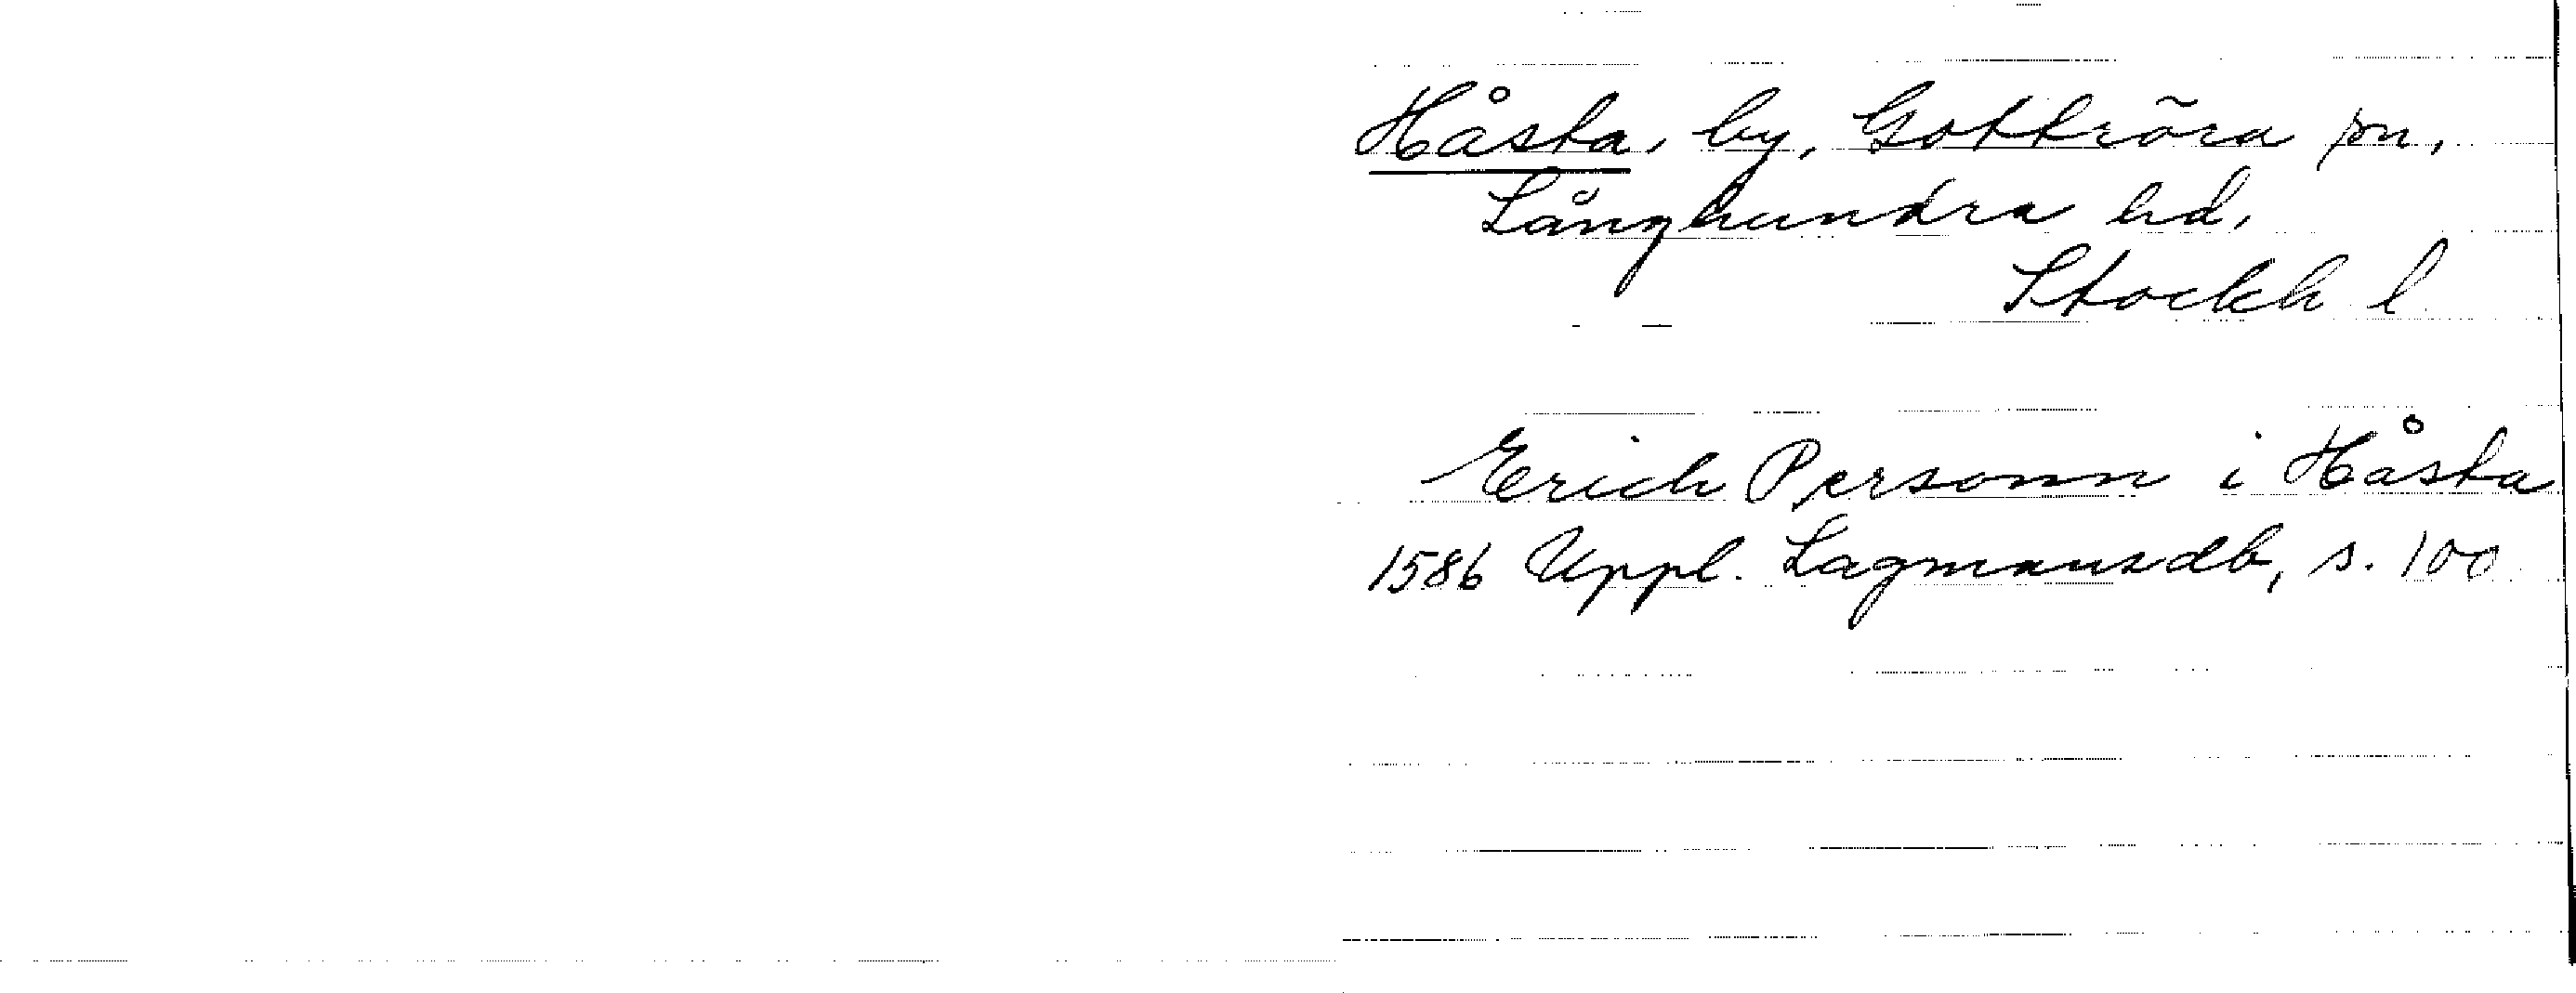 Håsta, by, Gottröra sn,
Långhundra hd,
Stockh l
Erich Personn i Håsta
1586 Uppl. Lagmansdb, s. 100